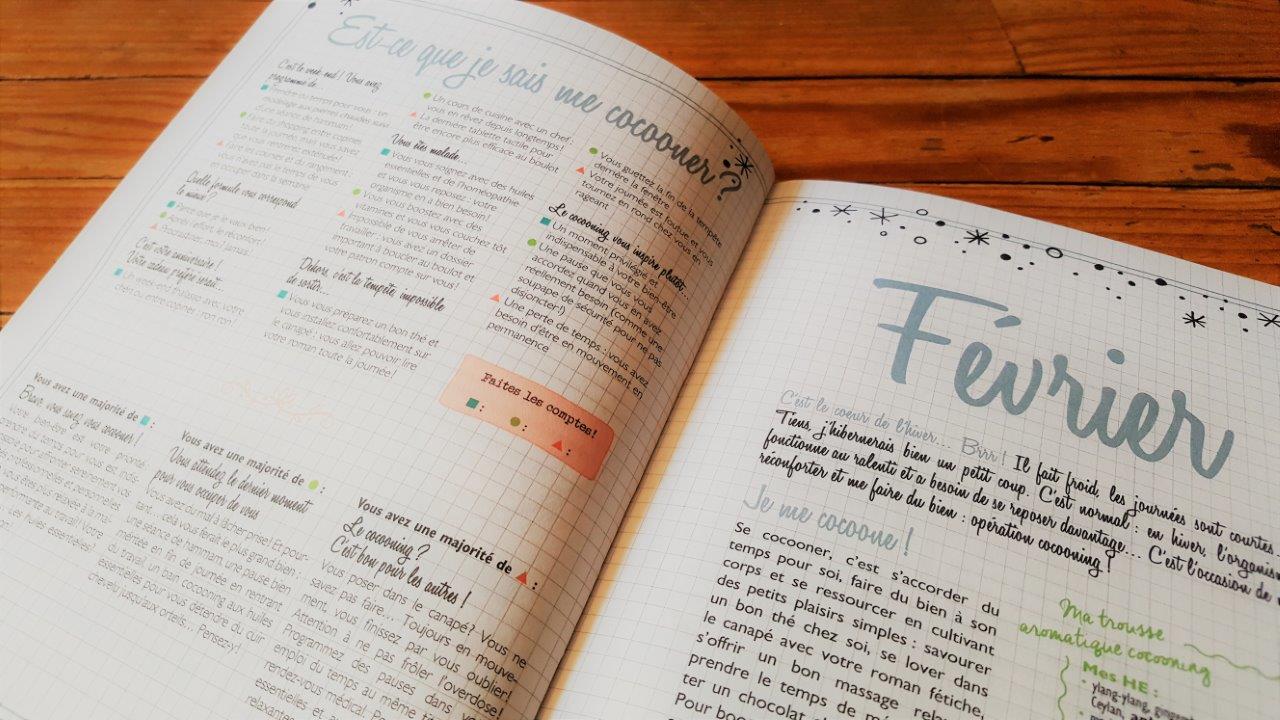 Est-ce que je sais me cocooner ?
C'est le week-end ! Vous avez
programmé de...
Prendre du temps pour vous : un
modelage aux pierres chaudes suivi
d'une séance de hammam !
Faire du shopping entre copines
toute la journée, mais vous avez
vous rentrerez exténuée !
Faire les courses et du rangement :
vous n'avez pas le temps de vous
occuper dans la semaine
Quelle formule vous correspond
le mieux ?
Parce que je le vaux bien !
Après l'effort, le réconfort !
Procrastiner, moi ? Jamais...
C'est votre anniversaire !
Votre cadeau préféré serait...
Un week-end thalasso avec votre
chéri ou entre copines : ron ron !
Un cours de cuisine avec un chef :
vous en rêvez depuis longtemps !
La dernière tablette tactile pour
être encore plus efficace au boulot
Vous êtes malade...
Vous vous soignez avec des huiles
essentielles et de l'homéopathie
et vous vous reposez : votre
organisme en a bien besoin !
Vous vous boostez avec des
vitamines et vous vous couchez tôt
Impossible de vous arrêter de
travailler : vous avez un dossier
important à boucler au boulot et
votre patron compte sur vous !
Dehors, c'est la tempête impossible
de sortir...
Vous vous préparez un bon thé et
vous installez confortablement sur
le canapé : vous allez pouvoir lire
votre roman toute la journée !
Vous guettez la fin de la tempête
derrière la fenêtre
Votre journée est foutue et vous
tournez en rond chez vous en
rageant
Le cocooning vous inspire plutôt...
Un moment privilégié et
indispensable à votre bien-être
Une pause que vous vous
accordez quand vous en avez
réellement besoin (comme une
soupape de sécurité pour ne pas
disjoncter !)
Une perte de temps : vous avez
besoin d'être en mouvement en
permanence
Faites les comptes!
: : :
Vous avez une majorité de :
Bravo, vous savez vous cocooner !
Votre bien-être est votre priorité.
Vous avez une majorité de :
Vous attendez le dernier moment
pour vous occuper de vous
Vous avez du mal à lâcher prise ! Et pour-
tant... cela vous ferait le plus grand bien :
une séance de hammam, une pause bien
méritée en fin de journée en rentrant
du travail, un bain cocooning aux huiles
essentielles pour vous détendre du cuir
chevelu jusqu'aux orteils... Pensez-y!
Vous avez une majorité de :
Le cocooning ?
C'est bon pour les autres !
Vous poser dans le canapé ? Vous ne
savez pas faire... Toujours en mouve-
ment, vous finissez par vous oublier!
Attention à ne pas frôler l'overdose!
Programmez des pauses dans votre
emploi du temps au même titre
rendez-vous médical.
essentielles et
relaxante
Février
C'est le coeur de l'hiver... Brrr ! Il fait froid, les journées sont courtes
Tiens, j'hibernerais bien un petit coup. C'est normal : en hiver, l'organis
fonctionne au ralenti et a besoin de se reposer davantage... C'est l'occasion de
réconforter et me faire du bien : opération cocooning !
Je me cocoone !
Se cocooner, c'est s'accorder du
temps pour soi, faire du bien à son
corps et se ressourcer en cultivant
des petits plaisirs simples : savourer
un bon thé chez soi, se lover dans
le canapé avec votre roman fétiche,
s'offrir un bon massage
prendre le temps de
ter un chocolat
Pour
Ma trousse
aromatique cocooning
Mes HE :
ylang-ylang,
Ceylan,